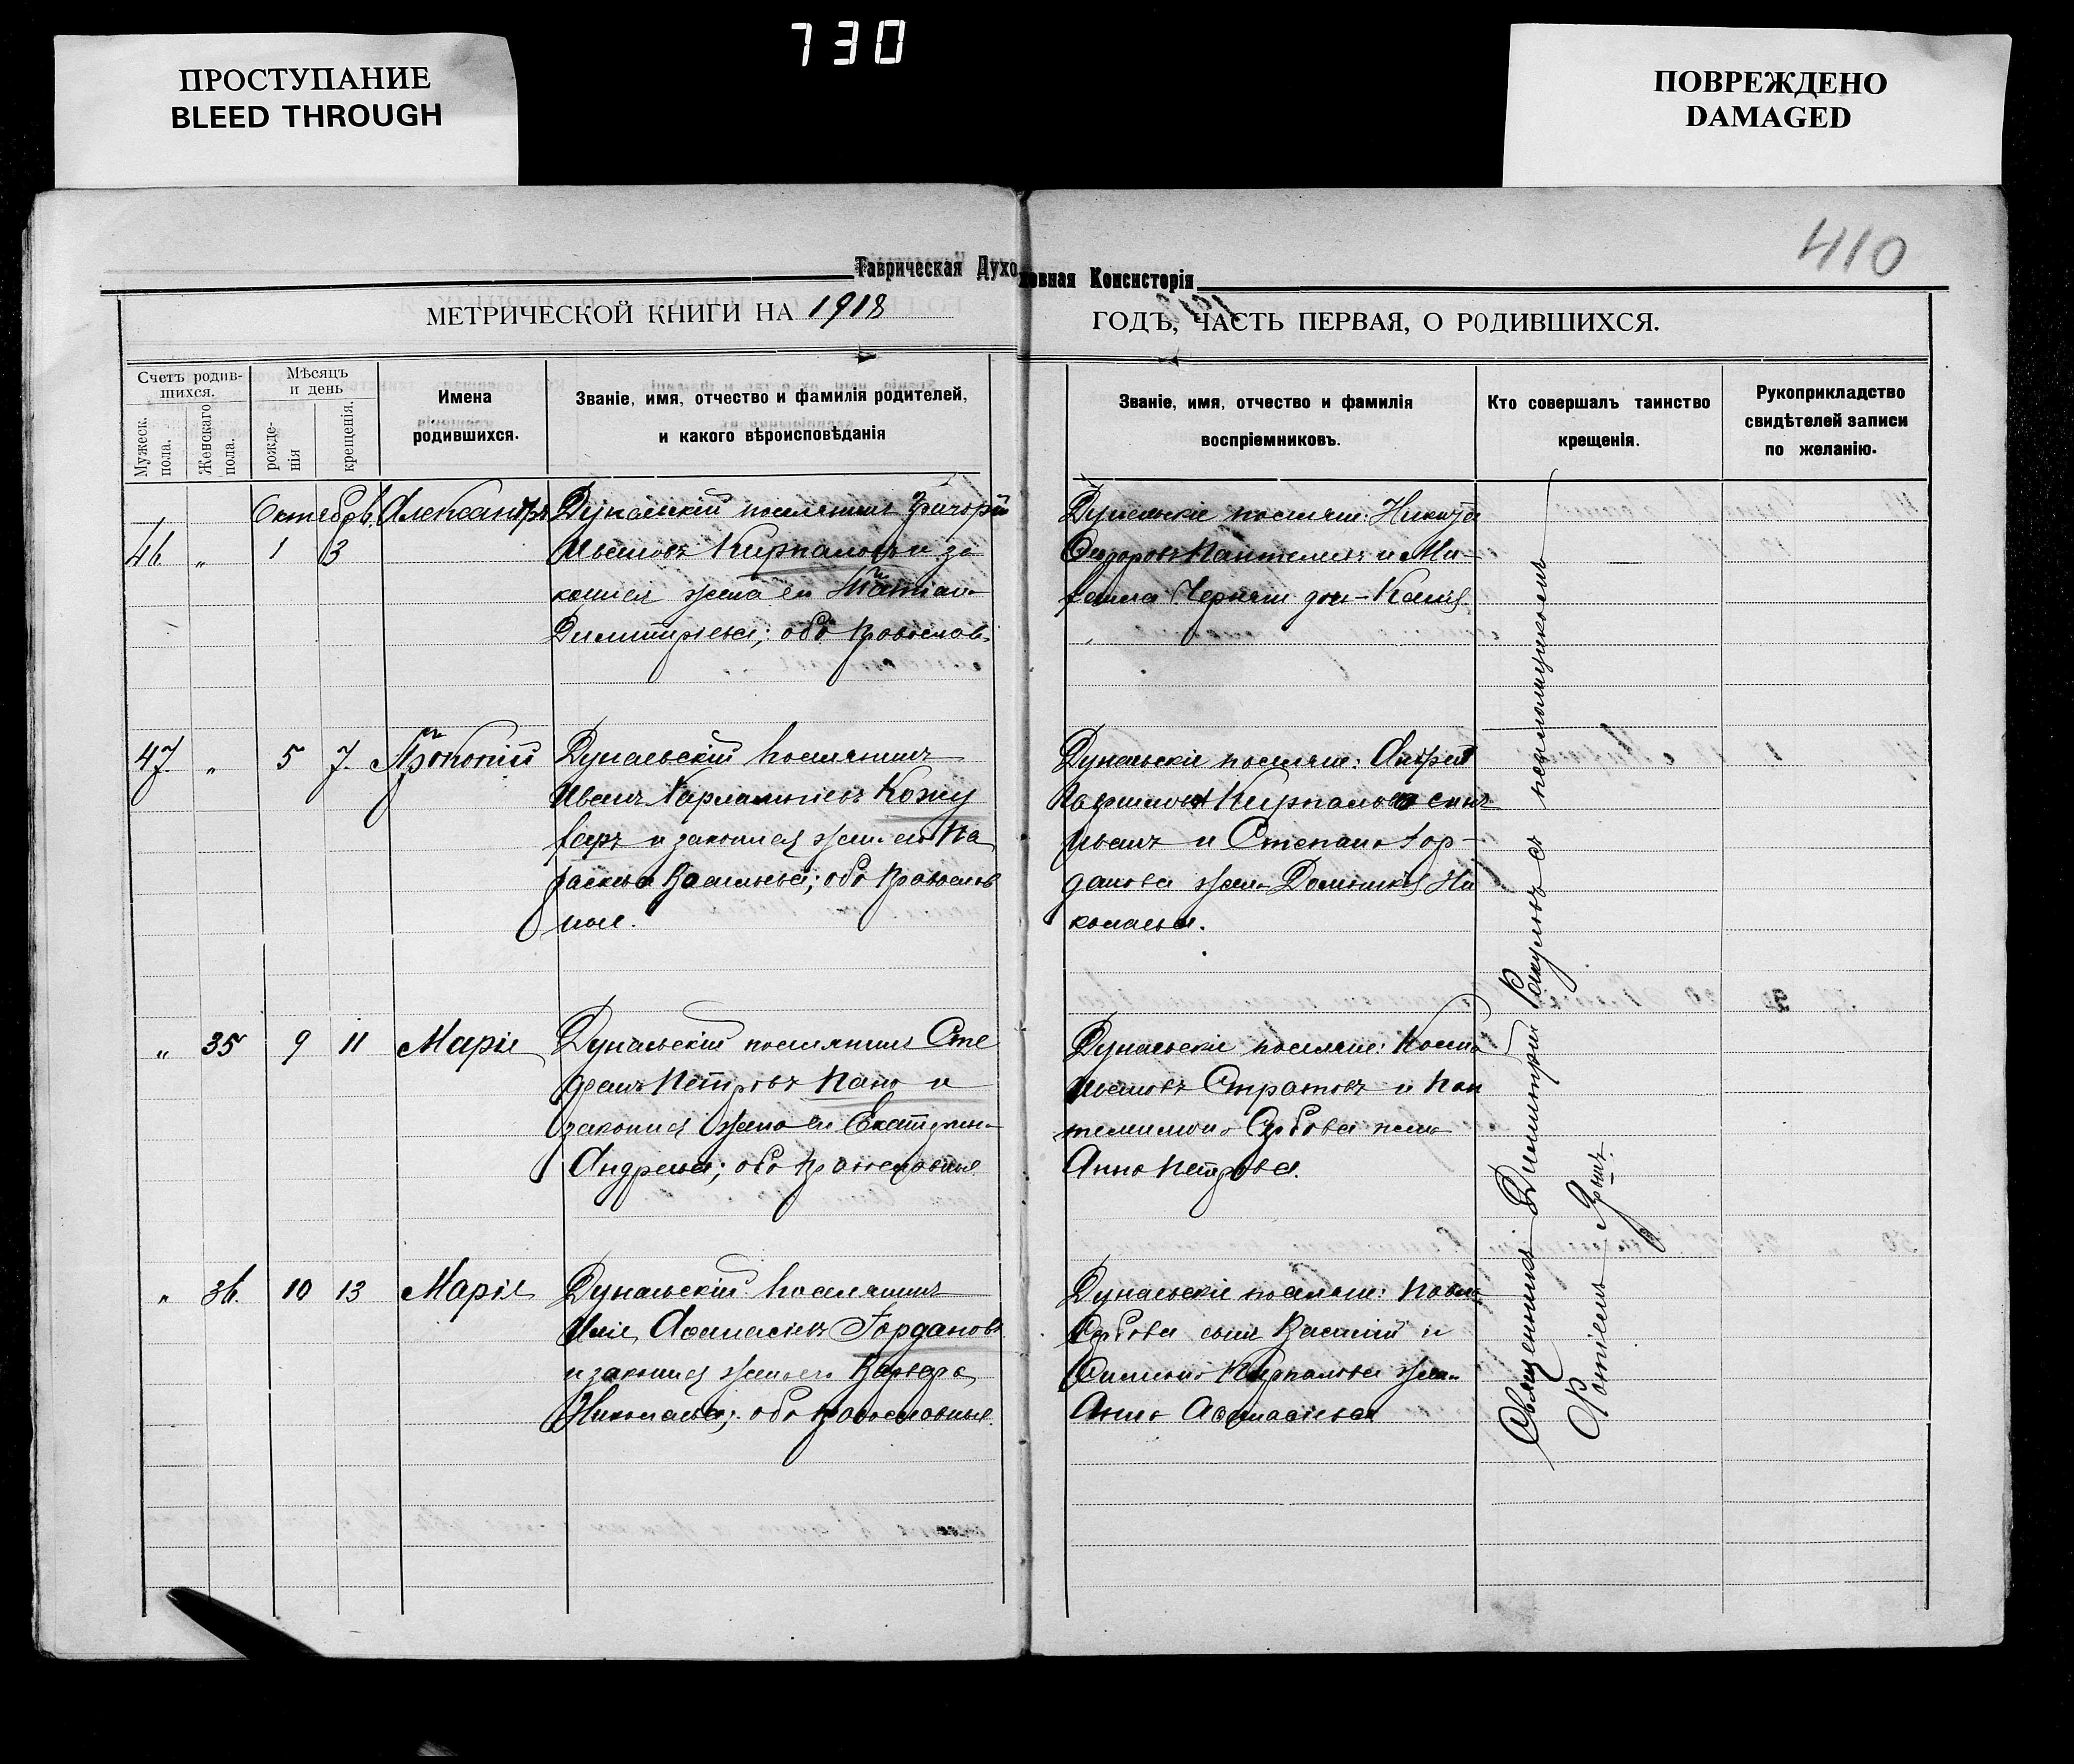 730
ПРОСТУПАНИЕ
BLEED THROUGH
ПОВРЕЖДЕНО
DAMAGED
410
Таврическая Духовная Консисторія
МЕТРИЧЕСКОЙ КНИГИ НА 1918
ГОДЪ, ЧАСТЬ ПЕРВАЯ, О РОДИВШИХСЯ.
Счетъ родив-
шихся.
Мужеск.
пола.
Женскаго
пола.
Мѣсяцъ
и день
рожде-
нія
крещенія.
Имена
родившихся.
Званіе, имя, отчество и фамилія родителей,
и какого вѣроисповѣданія
Званіе, имя, отчество и фамилія
воспріемниковъ.
Кто совершалъ таинство
крещенія.
Рукоприкладство
свидѣтелей записи
по желанію.
Октябрь Александръ Дунаевскій поселянинъ Григорій
46 „ 1 3 Ивановъ Кирпаловъ и за
конная жена его Татіана
Димитріева; оба православ.
Дунаевскіе поселяне: Никита
Ѳедоровъ Пантелей и Ми-
хаила
47 „ 5 7 Прокопій Дунаевскій поселянинъ
Иванъ Харлампіевъ Кожу
харъ и законная жена его Па
раскева Васильева; оба православ
ные.
Дунаевскіе поселяне: Андрей
Кирпалова сынъ
Иванъ и Степана Іор-
данова жена Домникія Ни
колаева.
„ 35 9 11 Марія Дунаевскій поселянинъ Сте
фанъ Петровъ Пано и
законная жена его Екатерина
Андреева; оба православные
Дунаевскіе поселяне: Косма
Ивановъ Стратовъ и Пан
телимона Сербова жена
Анна Петрова.
„ 36 10 13 Марія Дунаевскій поселянинъ
Илія Аѳанасіевъ Іордановъ
и законная жена его Варвара
Николаева; оба православные.
Дунаевскіе поселяне: Павла
Сербова сынъ Василій и
Симеона Кирпалова жена
Анна Аѳанасіева
Священникъ Димитрій съ псаломщикомъ